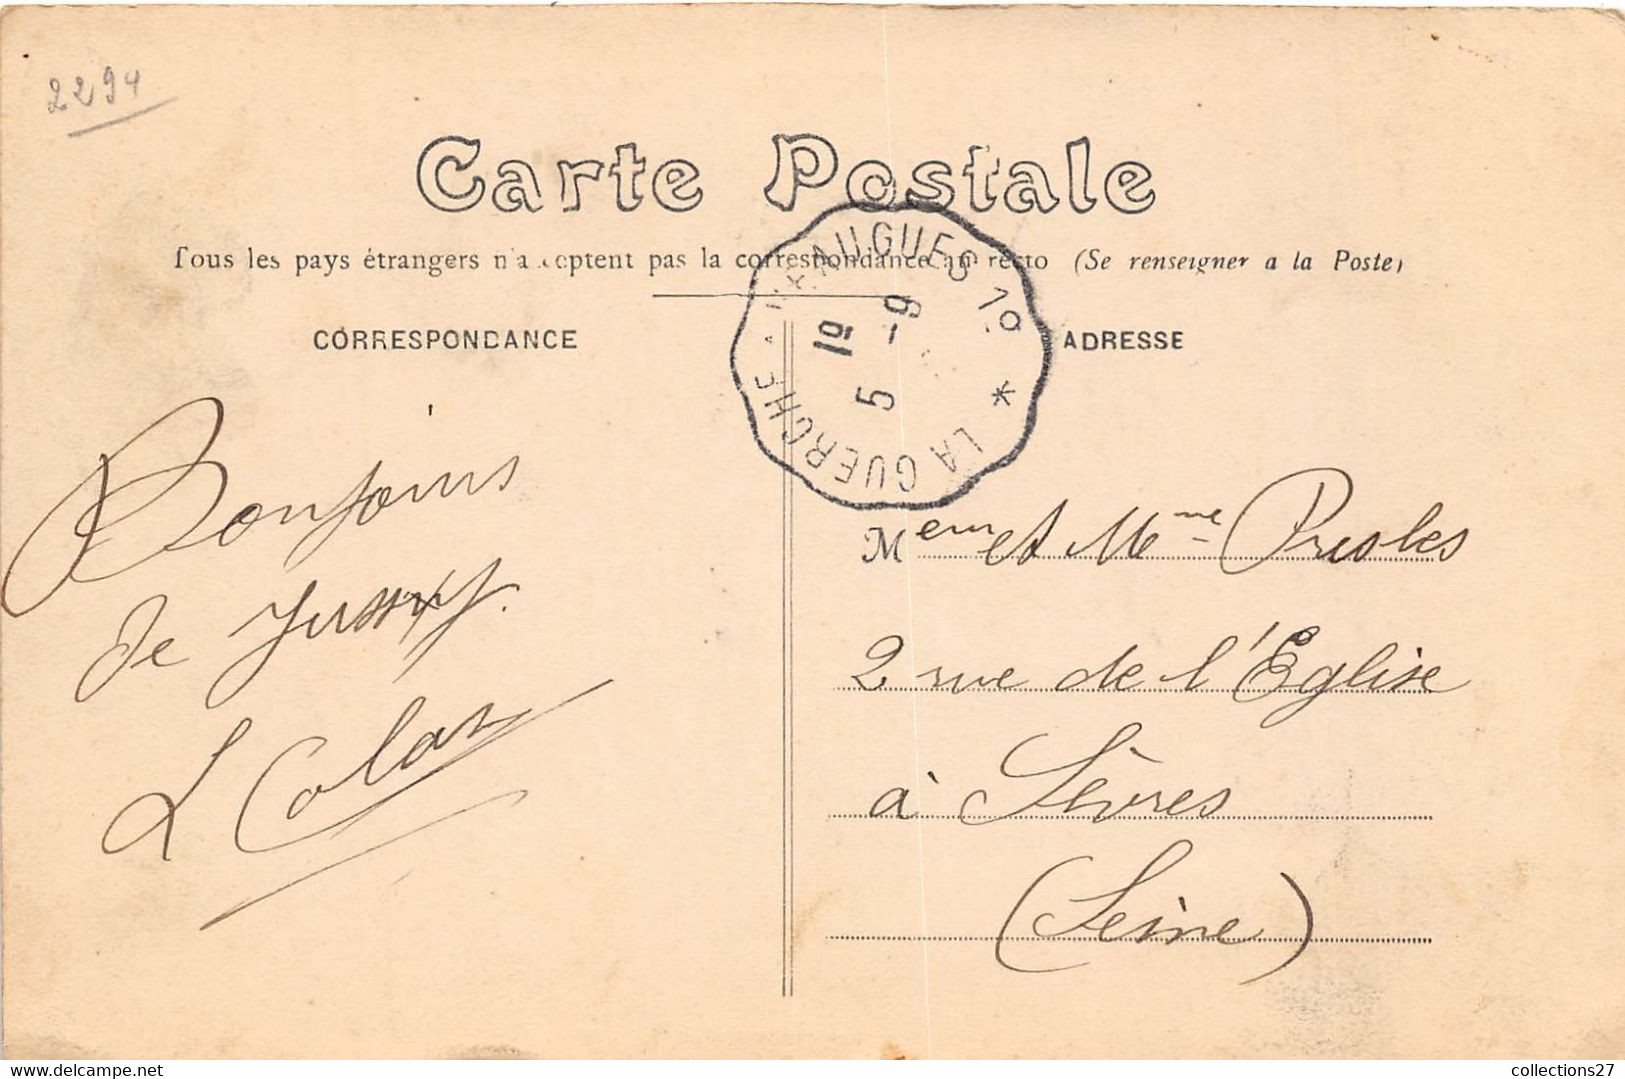 2294
Carte Postale
Tous les pays étrangers n'acceptent pas la correspondance au recto (Se renseigner a la Poste)
CORRESPONDANCE
ADRESSE
LA GUERCHE AUGUES 1º *
1º
5 -9
Bonjours
de Jussy.
L Colas
Meur et Mme Presles
2 rue de l'Eglise
à Sèvres
(Seine)
collections27